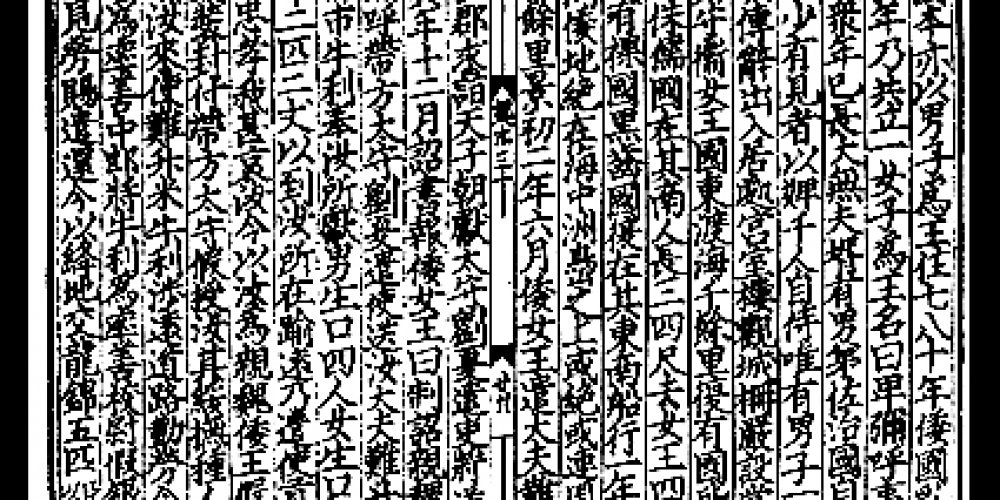 本亦以男子爲王住七八十年倭國
年乃共立一女子爲王名曰卑彌呼
衆年已長大無夫壻有男弟佐治國
少有見者以婢千人自侍唯有男子一
傳辭出入居處宮室樓觀城柵嚴設常
衛女王國東渡海千餘里復有國
侏儒國在其南人長三四尺去女王四
有裸國黑齒國復在其東南船行一年
倭地絕在海中洲島之上或絕或連周
餘里景初二年六月倭女王遣大夫難
三十
廿九
郡求詣天子朝獻太守劉夏遣吏將送
年十二月詔書報倭女王曰制詔親魏
呼帶方太守劉夏遣使送汝大夫難升
市牛利奉汝所獻男生口四人女生口
二匹二丈以到汝所在踰遠乃遣使貢
忠孝我甚哀汝今以汝爲親魏倭王假
裝封付帶方太守假授汝其綏撫種
汝來使難升米牛利涉遠道路勤勞今
爲率善中郎將牛利爲率善校尉假銀
見勞賜遣還今以絳地交龍錦五匹